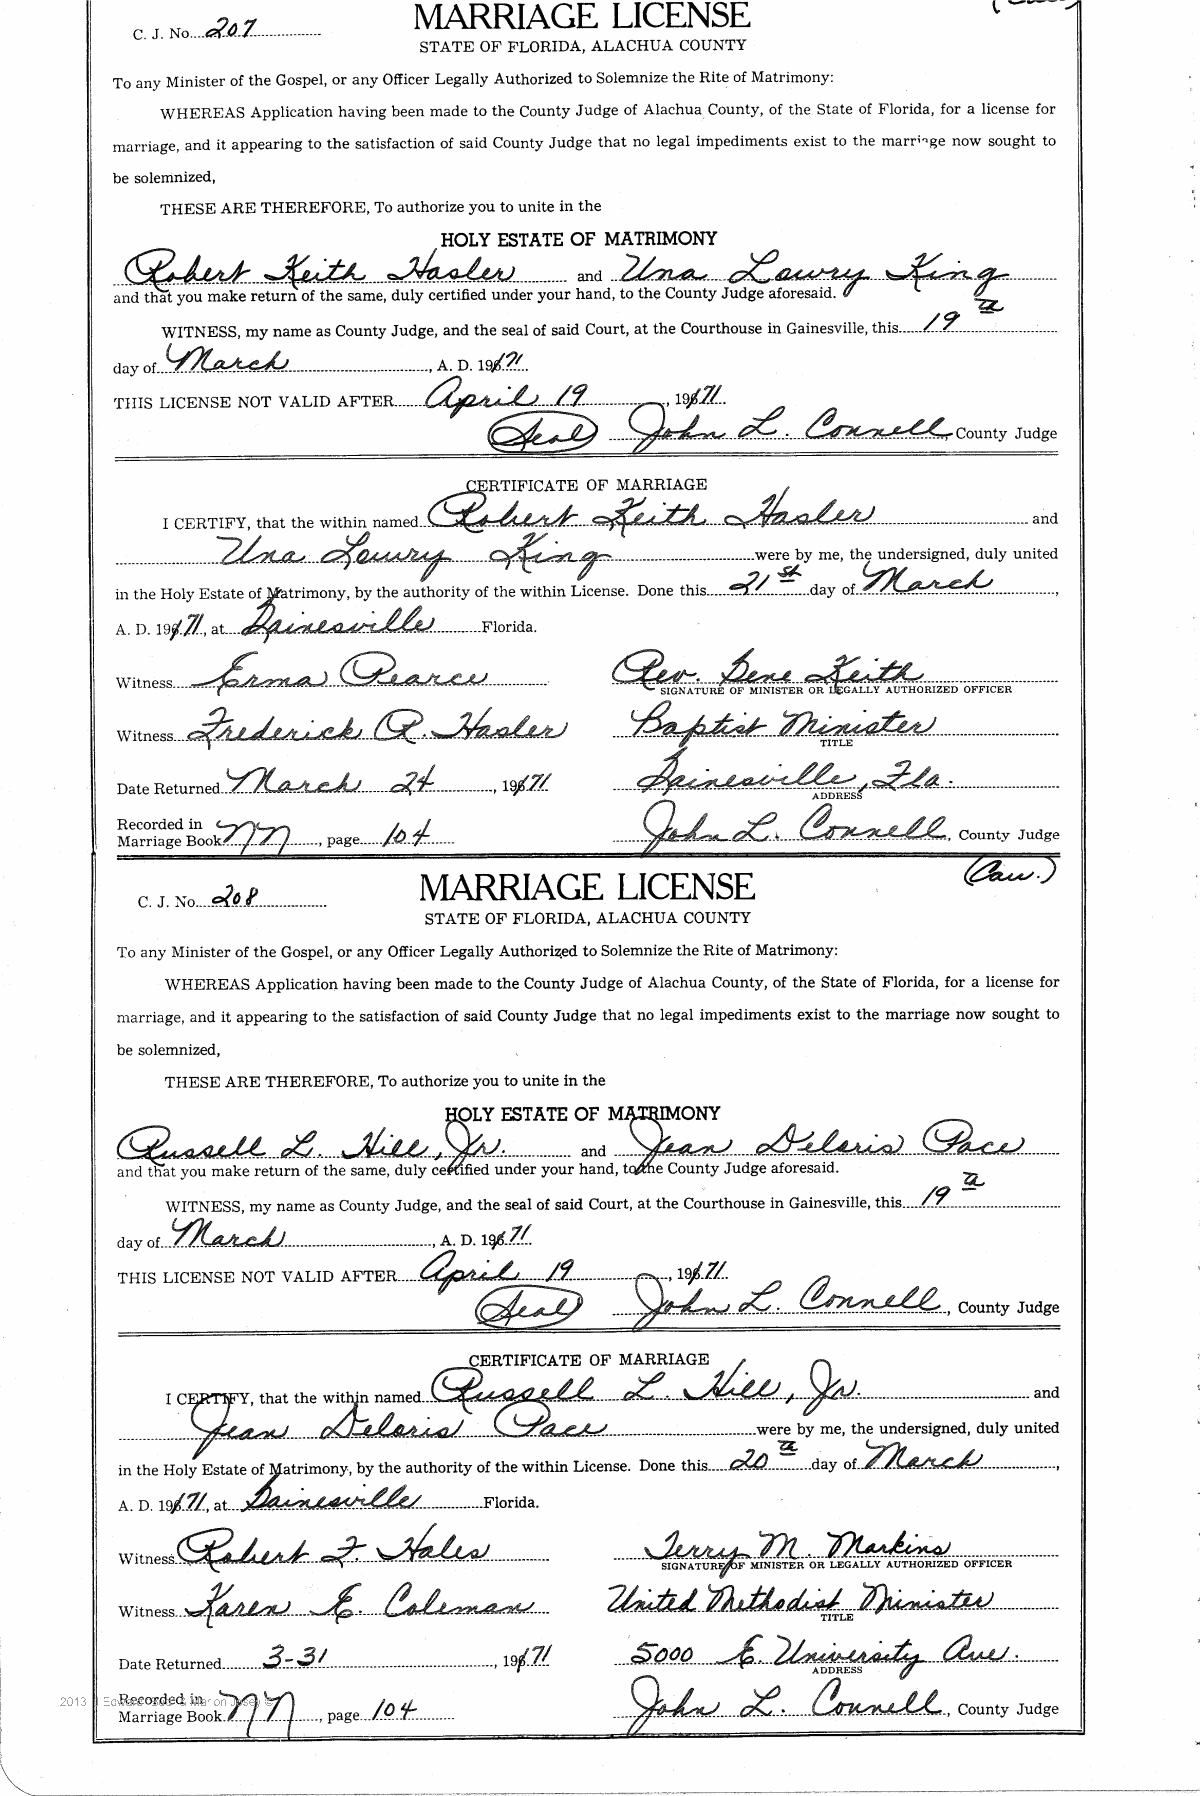 C. J. No. 207
MARRIAGE LICENSE
STATE OF FLORIDA, ALACHUA COUNTY
To any Minister of the Gospel, or any Officer Legally Authorized to Solemnize the Rite of Matrimony:
WHEREAS Application having been made to the County Judge of Alachua County, of the State of Florida, for a license for
marriage, and it appearing to the satisfaction of said County Judge that no legal impediments exist to the marriage now sought to
be solemnized,
THESE ARE THEREFORE, To authorize you to unite in the
HOLY ESTATE OF MATRIMONY
Robert Keith Hasler and Una Lowry King
and that you make return of the same, duly certified under your hand, to the County Judge aforesaid.
WITNESS, my name as County Judge, and the seal of said Court, at the Courthouse in Gainesville, this 19th
day of March, A. D. 1971
THIS LICENSE NOT VALID AFTER April 19, 1971
(Seal) John L. Connell County Judge
CERTIFICATE OF MARRIAGE
I CERTIFY, that the within named Robert Keith Hasler and
Una Lowry King were by me, the undersigned, duly united
in the Holy Estate of Matrimony, by the authority of the within License. Done this 21st day of March,
A. D. 1971, at Gainesville Florida.
Witness Erma Pearce Rev. Gene Keith
SIGNATURE OF MINISTER OR LEGALLY AUTHORIZED OFFICER
Witness Frederick R. Hasler Baptist Minister
TITLE
Date Returned March 24, 1971 Gainesville, Fla.
ADDRESS
Recorded in
Marriage Book NN, page 104 John L. Connell, County Judge
(Cau.)
C. J. No. 208
MARRIAGE LICENSE
STATE OF FLORIDA, ALACHUA COUNTY
To any Minister of the Gospel, or any Officer Legally Authorized to Solemnize the Rite of Matrimony:
WHEREAS Application having been made to the County Judge of Alachua County, of the State of Florida, for a license for
marriage, and it appearing to the satisfaction of said County Judge that no legal impediments exist to the marriage now sought to
be solemnized,
THESE ARE THEREFORE, To authorize you to unite in the
HOLY ESTATE OF MATRIMONY
Russell L. Hill, Jr. and Jean Deloris Pace
and that you make return of the same, duly certified under your hand, to the County Judge aforesaid.
WITNESS, my name as County Judge, and the seal of said Court, at the Courthouse in Gainesville, this 19th
day of March, A. D. 1971
THIS LICENSE NOT VALID AFTER April 19, 1971
(Seal) John L. Connell, County Judge
CERTIFICATE OF MARRIAGE
I CERTIFY, that the within named Russell L. Hill, Jr. and
Jean Deloris Pace were by me, the undersigned, duly united
in the Holy Estate of Matrimony, by the authority of the within License. Done this 20th day of March,
A. D. 1971, at Gainesville Florida.
Witness Robert F. Hales Terry M. Markins
SIGNATURE OF MINISTER OR LEGALLY AUTHORIZED OFFICER
Witness Karen E. Coleman United Methodist Minister
TITLE
Date Returned 3-31, 1971 5000 E. University Ave.
ADDRESS
2013
Recorded in
Marriage Book NN, page 104 John L. Connell, County Judge